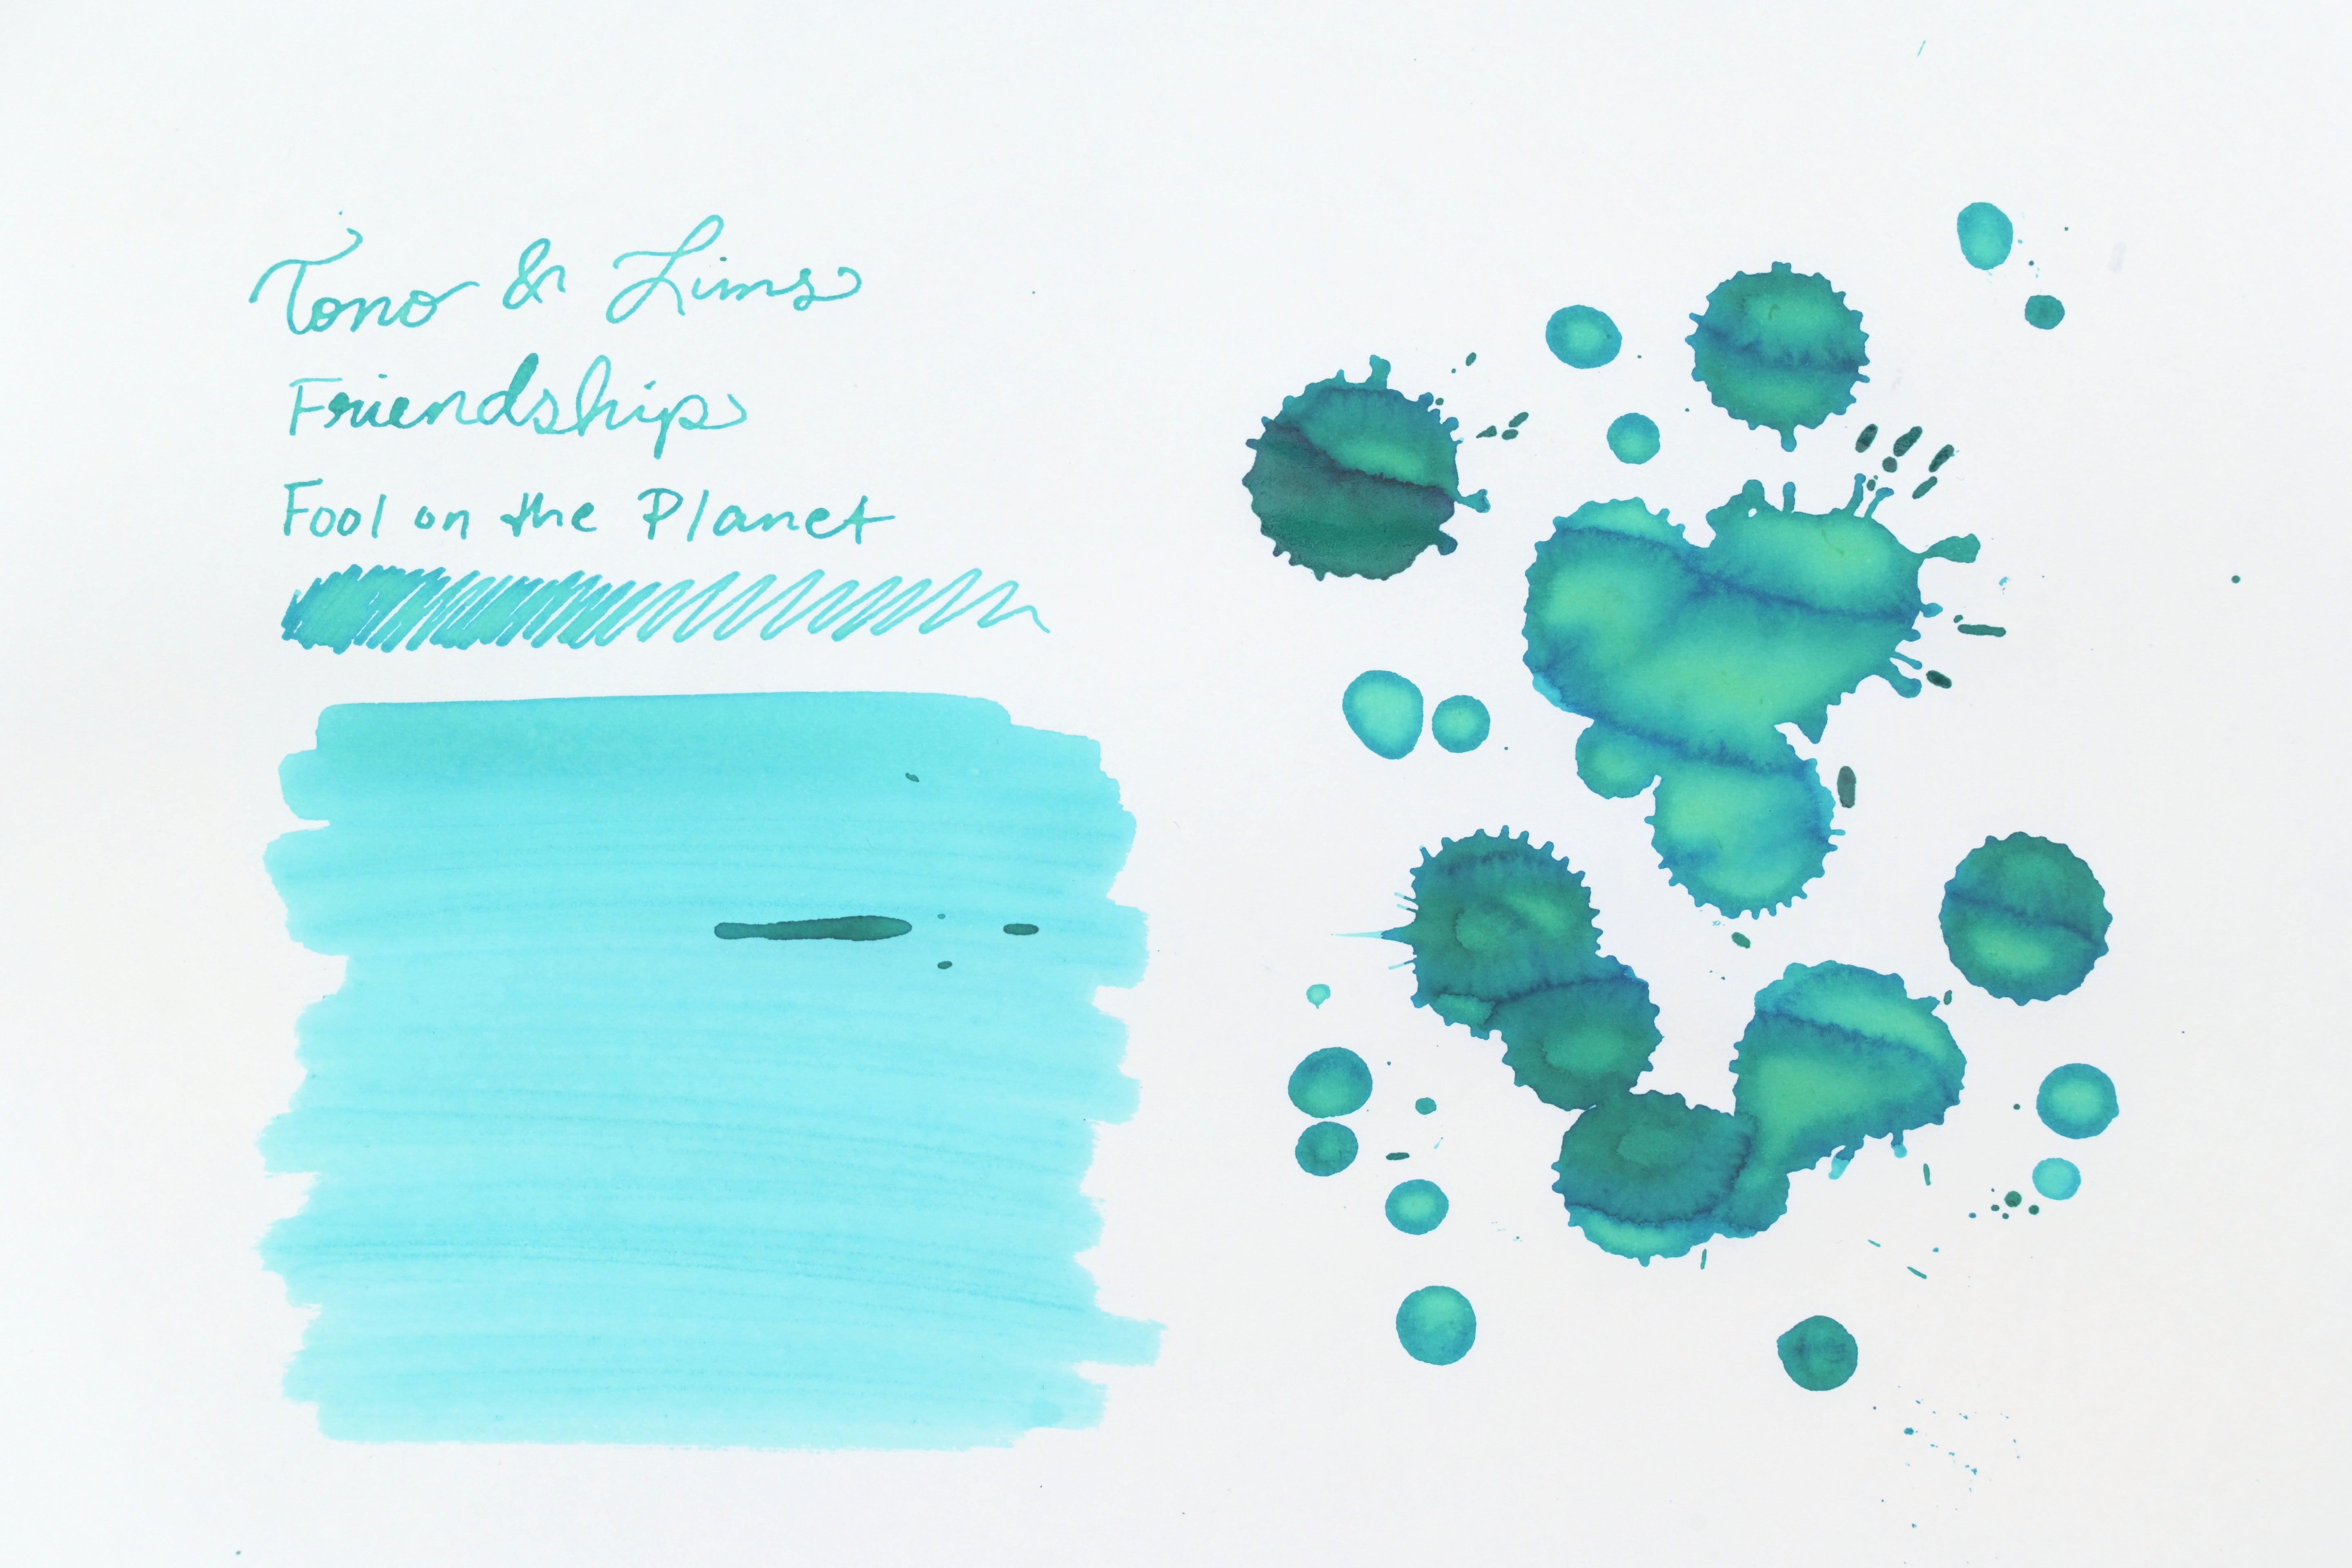 Tono & Lims
Friendship
Fool on the Planet